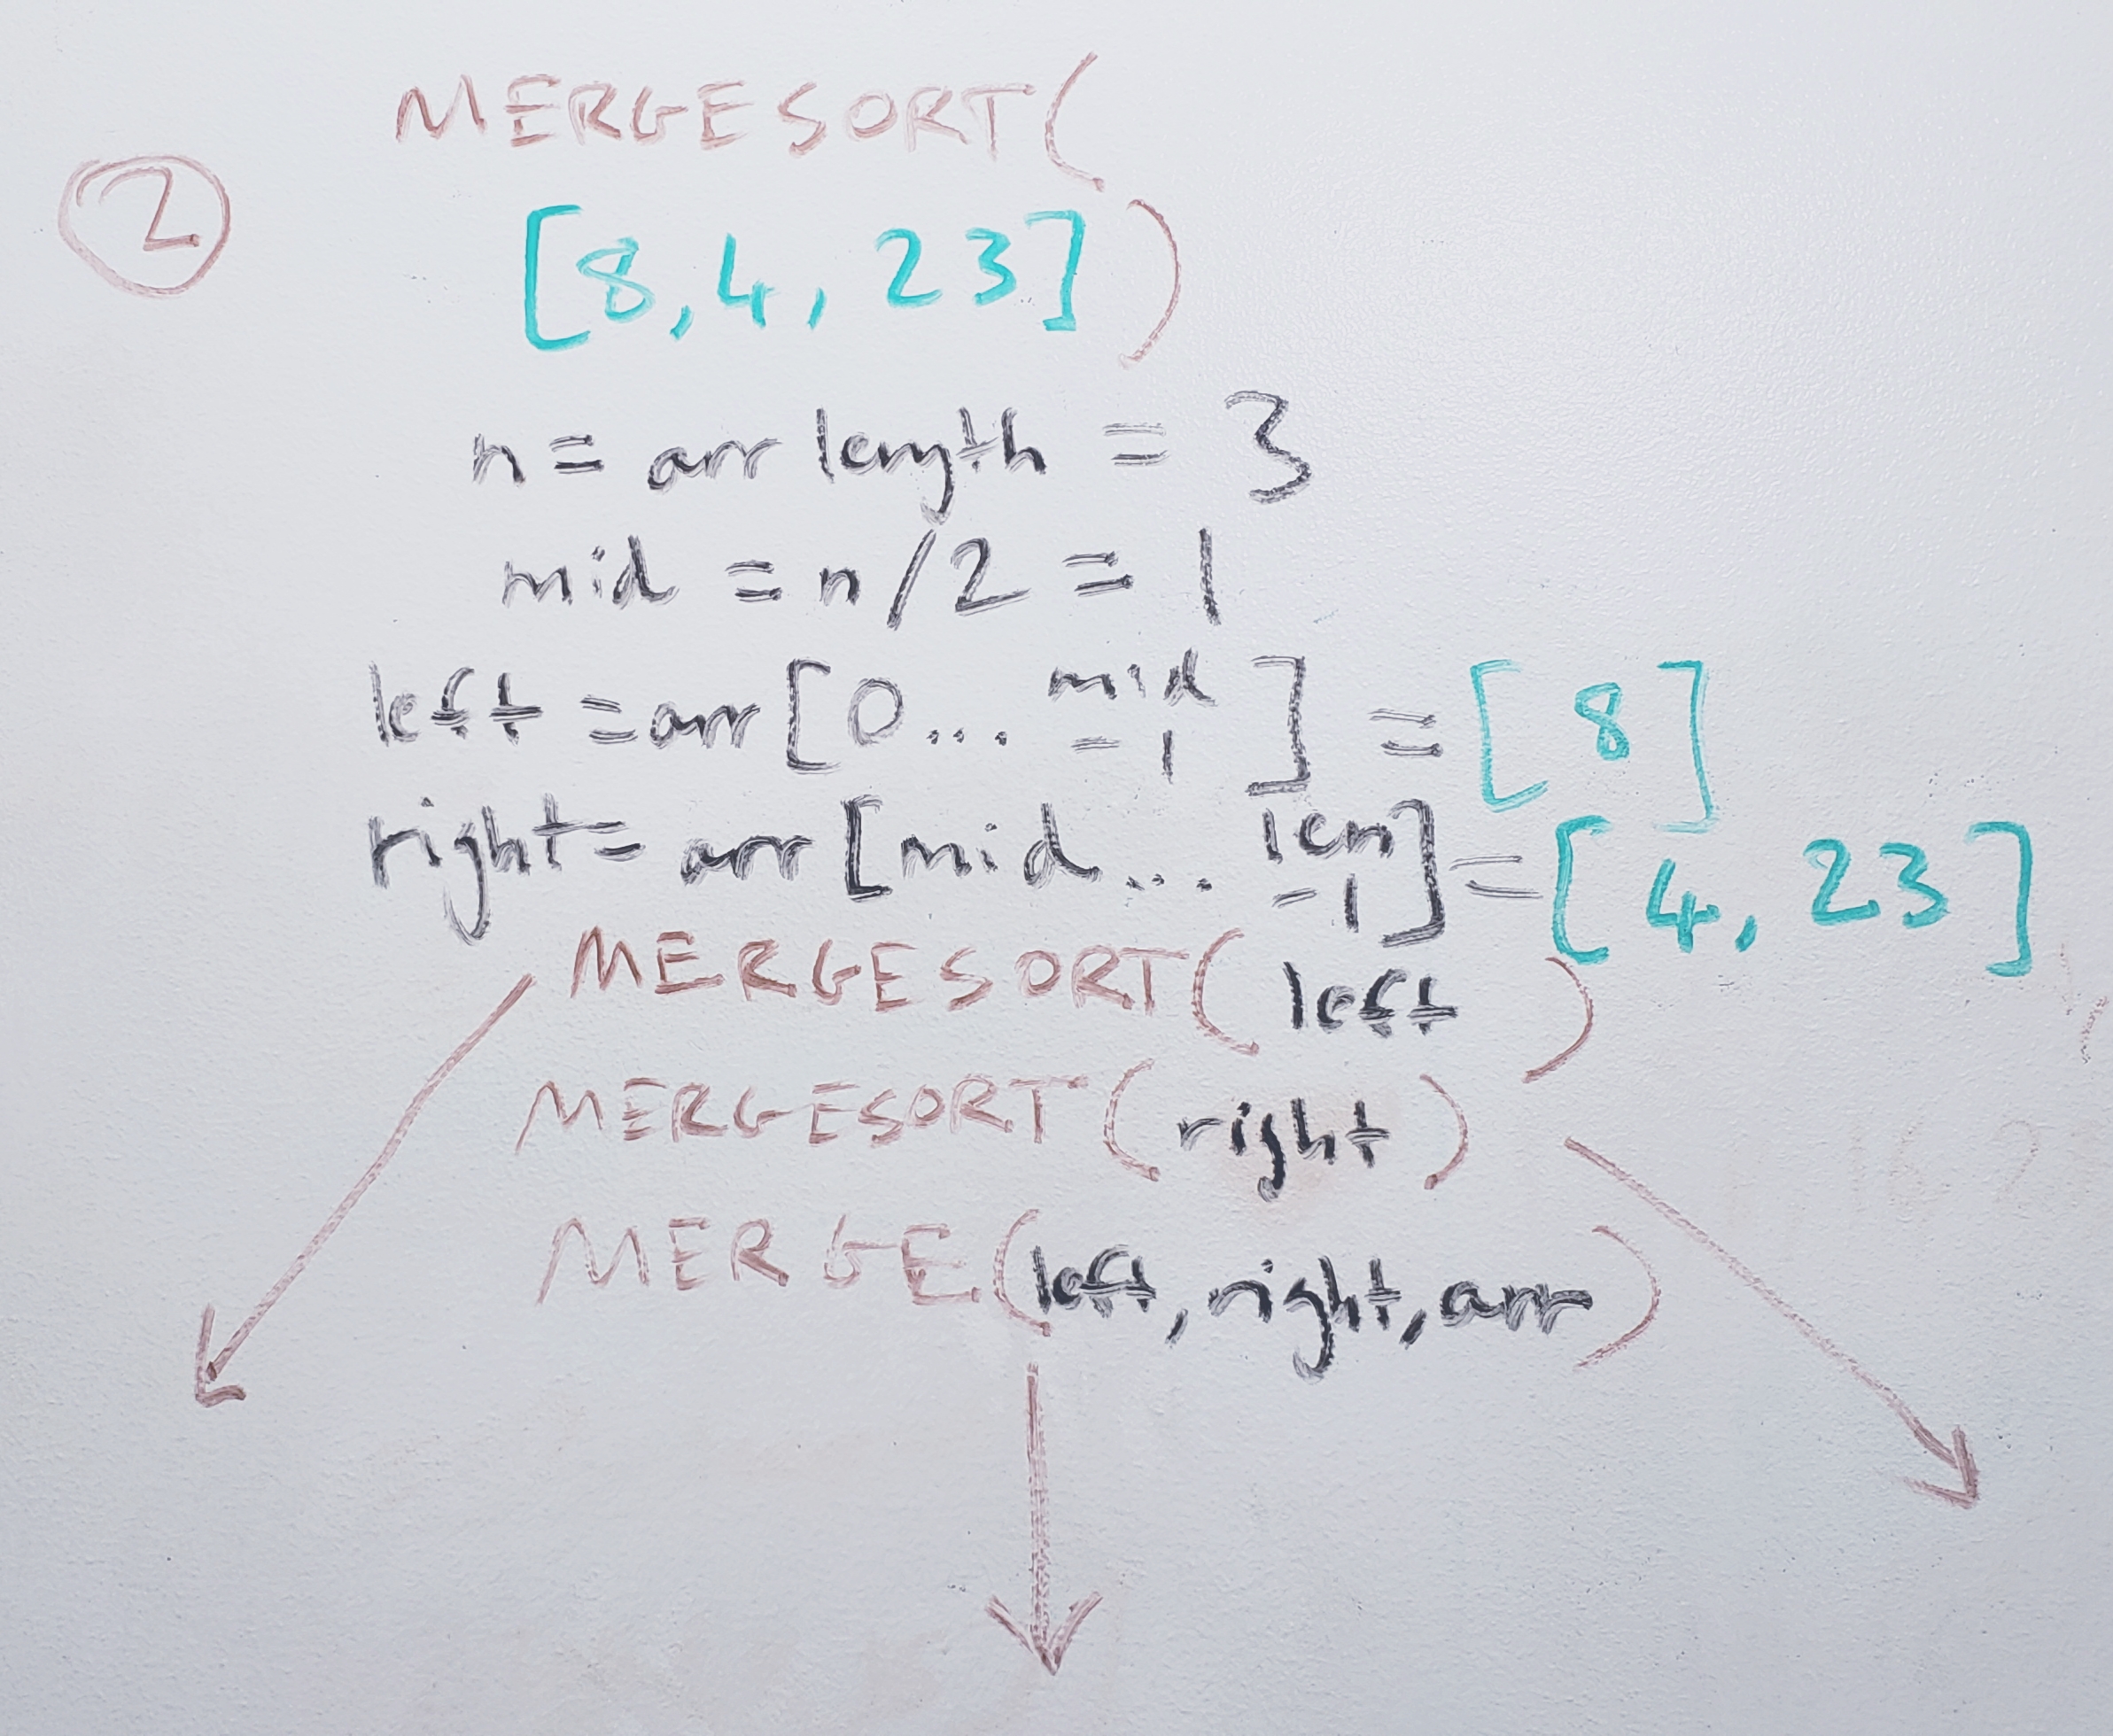 MERGESORT(
2
[8,4,23])
n = arr length = 3
mid = n/2 = 1
left = arr[0... mid -1] = [8]
right = arr[mid... len -1] = [4, 23]
MERGESORT(left)
MERGESORT(right)
MERGE(left, right, arr)